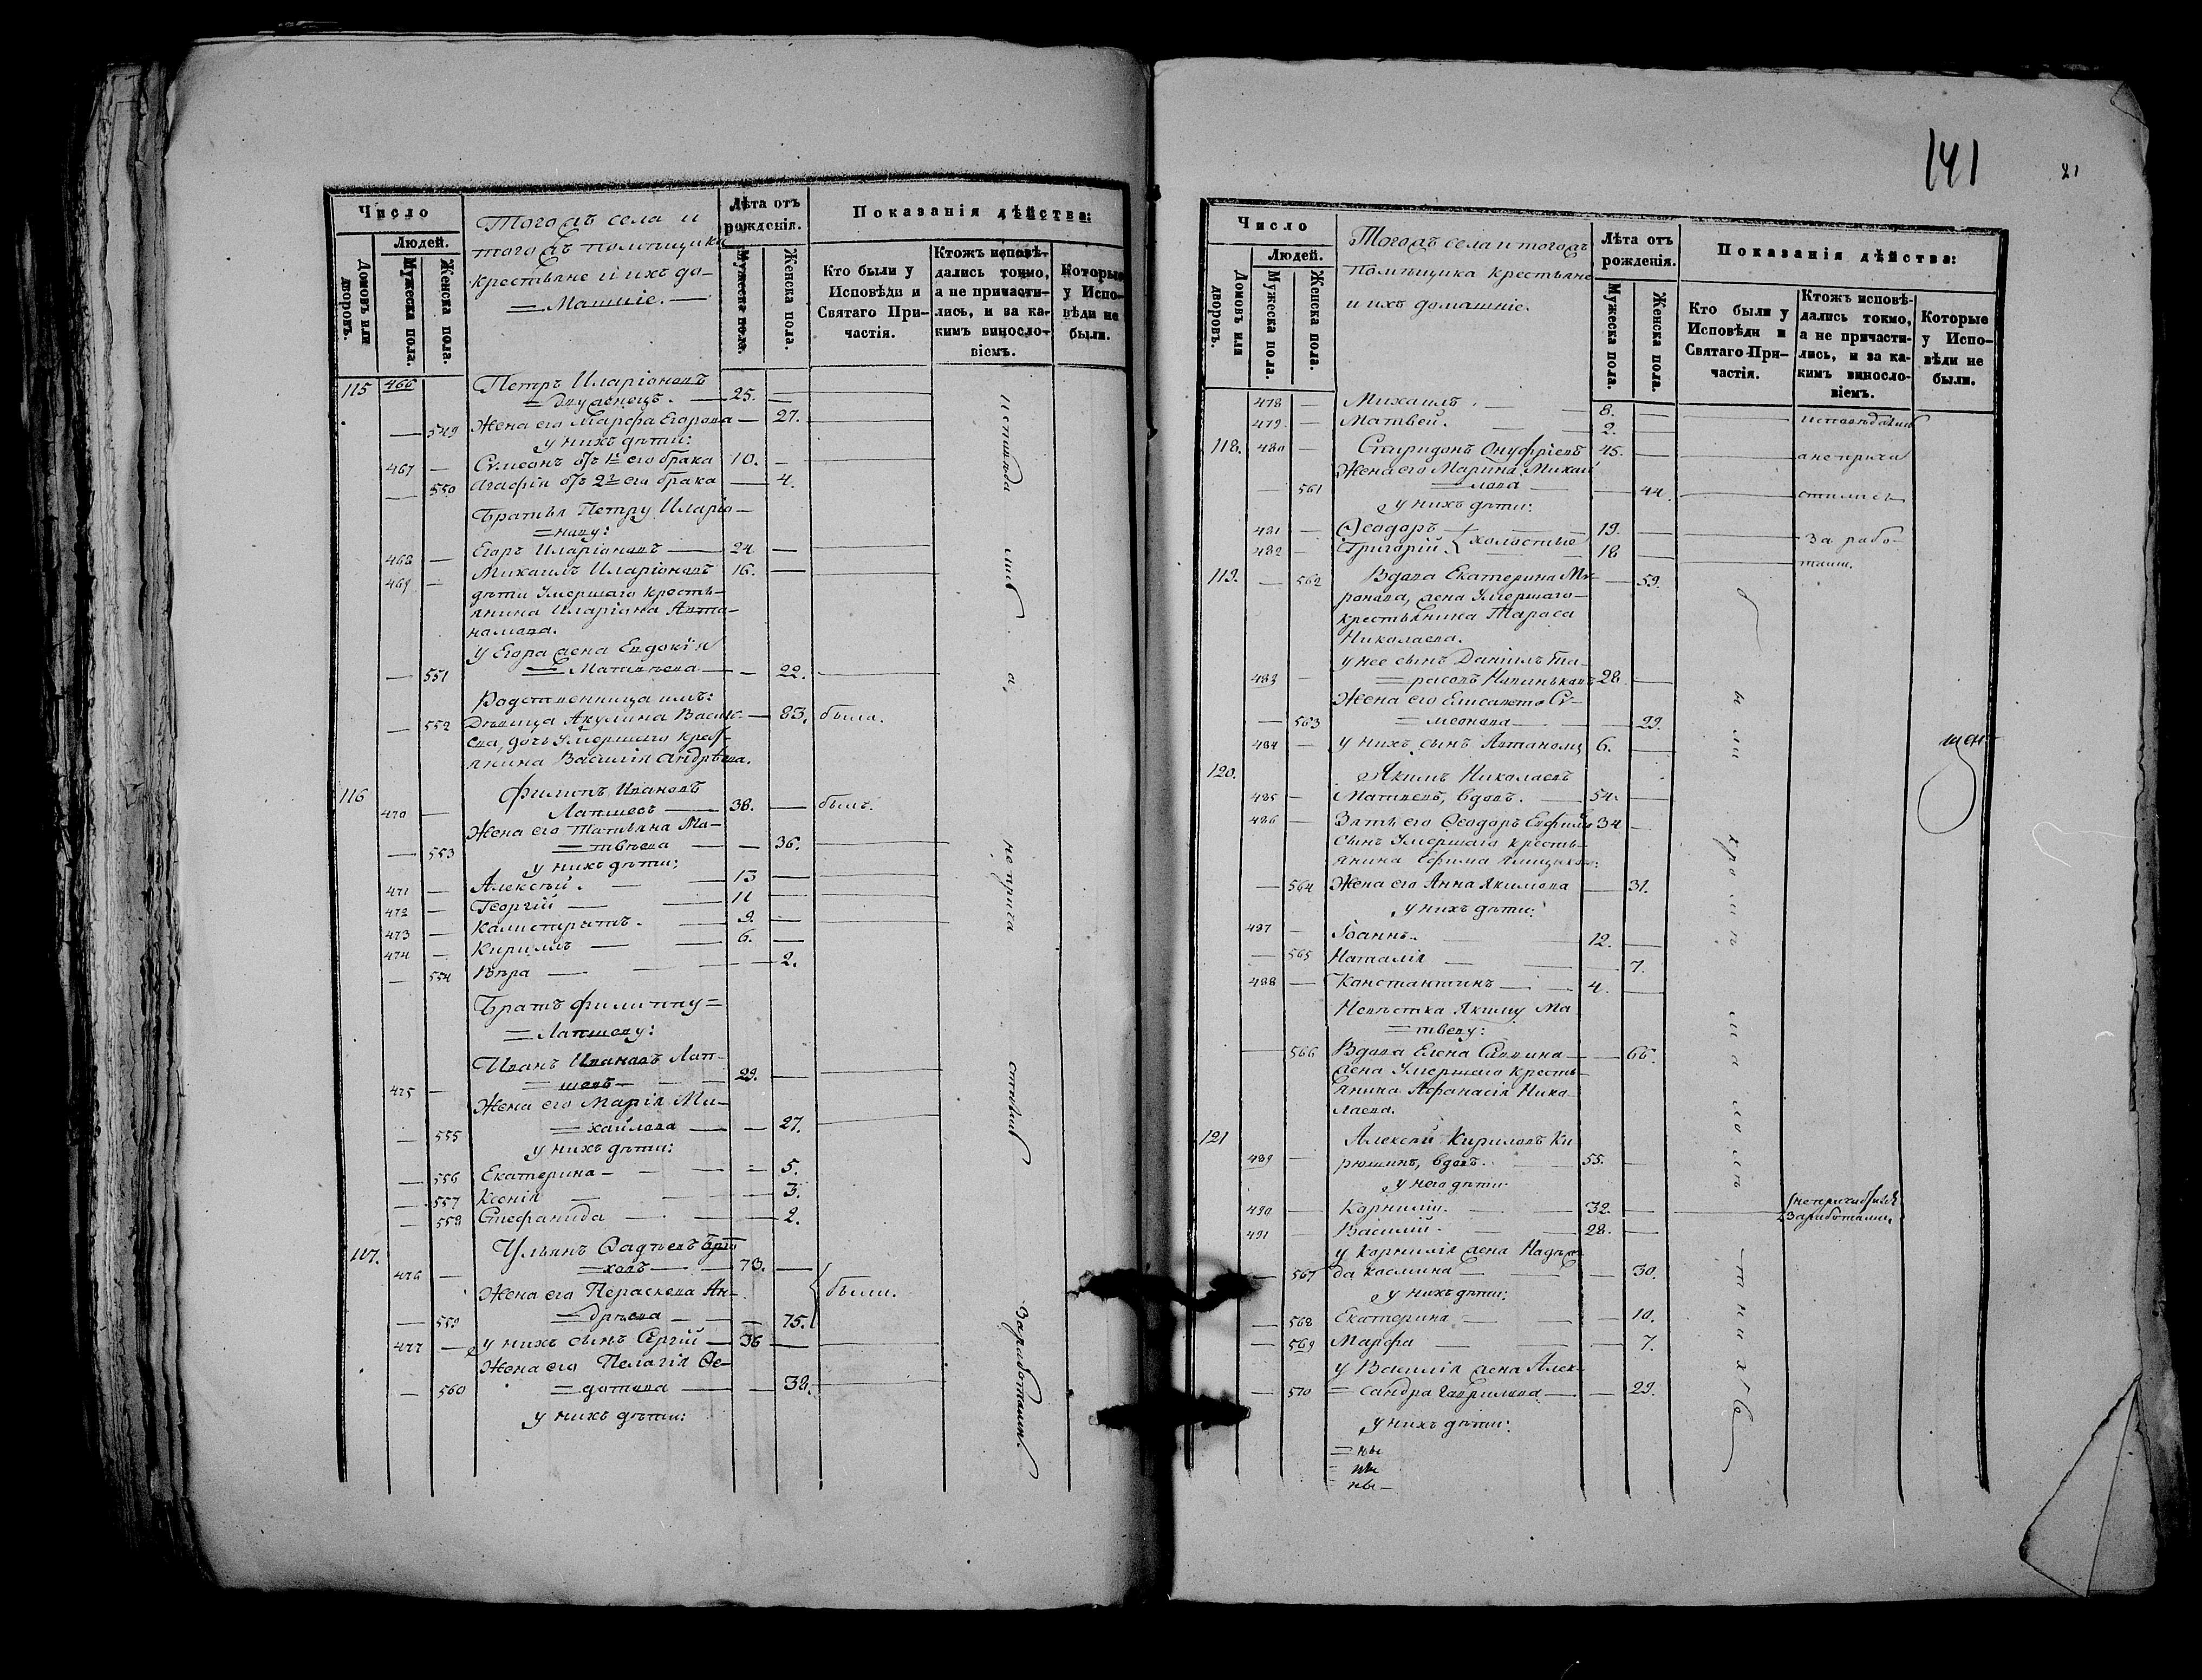 Число
Людей.
Домовъ или дворовъ.
Мужеска пола.
Женска пола.
Тогожъ села и
тогожъ помѣщика
крестьяне и ихъ до-
=машніе.—
Лѣта отъ
рожденія.
Мужеска пола.
Женска пола.
Показанія дѣйства:
Кто были у
Исповѣди и
Святаго При-
частія.
Ктожъ исповѣ-
дались токмо,
а не причасти-
лись, и за ка-
кимъ виносло-
віемъ.
Которые
у Испо-
вѣди не
были.
115 466 Петръ Иларіоновъ
= 25. —
— 549 Жена его Марфа Егорова — 27.
у нихъ дѣти:
467 — Сѵмеонъ отъ 1го его брака 10. —
— 550 Агафія отъ 2го его брака — 4.
Братья Петру Иларіо-
=нову:
468 — Егоръ Иларіоновъ — 24 —
469 — Михаилъ Иларіоновъ 16. —
дѣти Умершаго кресть-
янина Иларіона Авто-
номова.
У Егора жена Евдокія
— 551 = Матвѣева — — 22.
Родственница имъ:
— 552 Дѣвица Акулина Василь- — 83. была.
ева, дочь Умершаго крес-
янина Василія Андрѣева.
116 Филипъ Ивановъ
470 — Лапшовъ — 38. — былъ.
Жена его Татьяна Ма-
— 553 =твѣева — — 36.
у нихъ дѣти:
471 — Алексѣй. — 13 —
472 — Георгій — 11 —
473 — Калистратъ. — 9. —
474 — Кирилъ — 6. —
— 554 Вѣра — — 2.
Братъ Филиппу=
=Лапшову:
Иванъ Ивановъ Лап-
475 — =шовъ — 29. —
Жена его Марія Ми-
— 555 =хайлова — — 27.
у нихъ дѣти:
— 556 Екатерина — = 5.
— 557 Ксенія — — 3.
— 558 Стефанида — — 2.
117. Ульянъ Фадѣевъ
476 — =ховъ — 73. —
Жена его Параскева Ан- были.
— 559 =дрѣева — — 75.
477 — у нихъ сынъ Сергій — 36 —
Жена его Пелагія Ѳе-
— 560 =дотова — — 38.
у нихъ дѣти:
исповѣда лись а, не прича стились За работами.
141
21
Число
Людей.
Домовъ или дворовъ.
Мужеска пола.
Женска пола.
Тогожъ села и тогожъ
помѣщика крестьяне
и ихъ домашніе.
Лѣта отъ
рожденія.
Мужеска пола.
Женска пола.
Показанія дѣйства:
Кто были у
Исповѣди и
Святаго При-
частія.
Ктожъ исповѣ-
дались токмо,
а не причасти-
лись, и за ка-
кимъ виносло-
віемъ.
Которые
у Испо-
вѣди не
были.
478 — Михаилъ. — 8. — исповѣдались
479. — Матвей. — 2. —
118. 480 — Спиридонъ Онуфріевъ 45. — а не прича
Жена его Марина Михай
— 561 =лова — — 44. стились
у нихъ дѣти:
481 — Ѳеодоръ { холостые 19. — За рабо-
482 — Григорій. 18 — тами.
119. — 562 Вдова Екатерина Ми- — 59.
ронова, жена Умершаго
крестьянина Тараса
Николаева.
у нее сынъ Даніилъ Та-
483 — =расовъ 28 —
Жена его Елисавета Сѵ-
— 563 =меонова — — 29.
484 — у нихъ сынъ Автаномъ 6. —
120. Якимъ Николаевъ
485 — Матвеевъ, вдовъ. — 54. —
486 — Зять его Ѳеодоръ Евфимовъ 34 —
сынъ Умершаго кресть-
янина Ефима
— 564 Жена его Анна Якимова — 31.
у нихъ дѣти:
487 — Іоаннъ. — 12. —
— 565 Наталія — — 7.
488 — Константинъ — 4. —
Невѣстка Якиму Ма
=твееву:
— 566 Вдова Елена Саввина — — 66.
жена Умершаго кресть-
янина Афанасія Нико-
лаева.
121 Алексѣй Кириловъ Ки
489 — рюшинъ, вдовъ. — 55. —
у него дѣти
490 — Карнилій. — 32. — не приходили
491 — Василій. — 28. — За работами.
у Карнилія жена Надеж-
— 567 да Касмина — — 30.
у нихъ дѣти:
— 568 Екатерина — — 10.
— 569 Марфа — — 7.
у Василія жена Алек-
— 570 =сандра Гаврилова — — 29.
у нихъ дѣти:
=ны
=ны
ны—
б ы ли кромѣ мало лѣ -тнихъ
щен